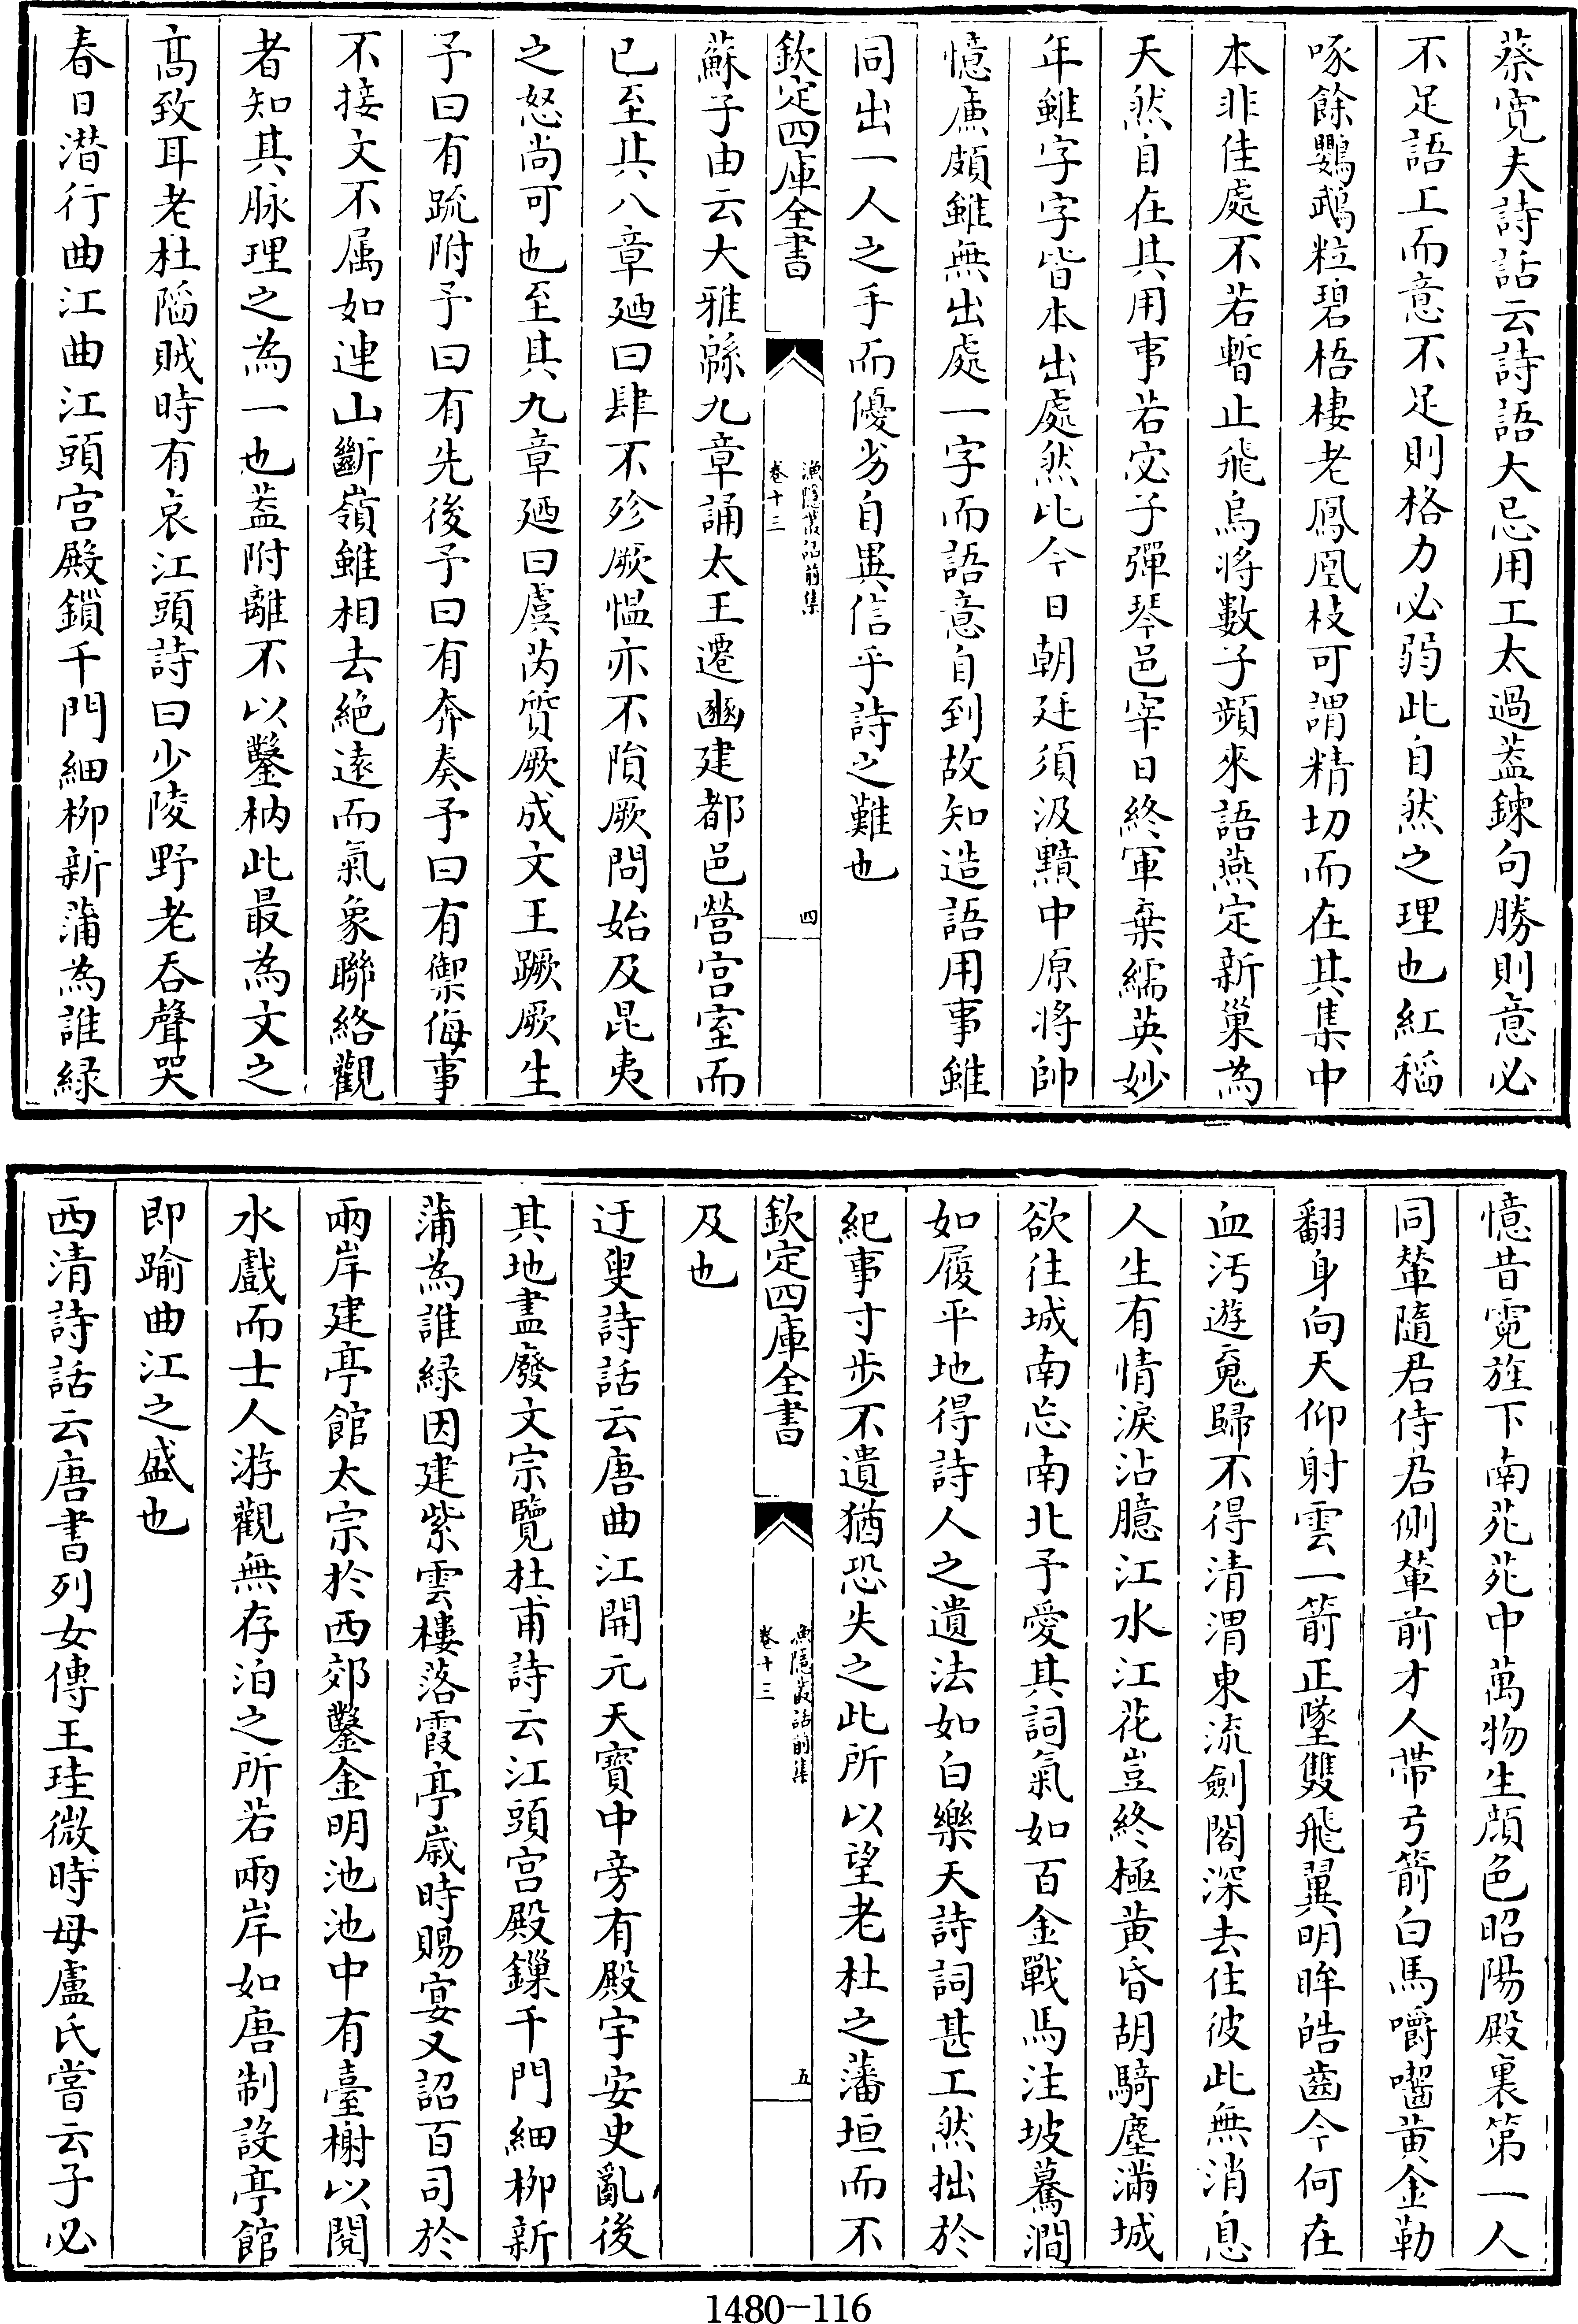 蔡寛夫詩話云詩語大忌用工太過葢鍊句勝則意必
不足語工而意不足則格力必弱此自然之理也紅稻
啄餘鸚鵡粒碧梧棲老鳳凰枝可謂精切而在其集中
本非佳處不若暫止飛烏將數子頻來語燕定新巢為
天然自在其用事若宓子彈琴邑宰日終軍棄繻英妙
年雖字字皆本出處然此今日朝廷須汲黯中原將帥
憶廉頗雖無出處一字而語意自到故知造語用事雖
同出一人之手而優劣自異信乎詩之難也
欽定四庫全書
漁隱叢話前集
卷十三
四
蘇子由云大雅緜九章誦太王遷豳建都邑營宫室而
已至其八章廼曰肆不殄厥愠亦不隕厥問始及昆夷
之怒尚可也至其九章廼曰虞芮質厥成文王蹶厥生
予曰有疏附予曰有先後予曰有奔奏予曰有禦侮事
不接文不属如連山斷嶺雖相去絶逺而氣象聯絡觀
者知其脉理之為一也葢附離不以鑿枘此最為文之
髙致耳老杜䧟賊時有哀江頭詩曰少陵野老吞聲哭
春日潜行曲江曲江頭宫殿鎖千門細柳新蒲為誰緑
憶昔霓旌下南苑苑中萬物生顔色昭陽殿裏第一人
同輦隨君侍君側輦前才人帶弓箭白馬嚼囓黄金勒
翻身向天仰射雲一箭正墜雙飛翼明眸皓齒今何在
血汚遊䰟歸不得清渭東流劍閣深去住彼此無消息
人生有情淚沾臆江水江花豈終極黄昏胡騎塵滿城
欲往城南忘南北予愛其詞氣如百金戰馬注坡驀澗
如履平地得詩人之遺法如白樂天詩詞甚工然拙於
紀事寸歩不遺猶恐失之此所以望老杜之藩垣而不
及也
欽定四庫全書
漁隱叢話前集
卷十三
五
迂叟詩話云唐曲江開元天寳中旁有殿宇安史亂後
其地盡廢文宗覽杜甫詩云江頭宫殿鏁千門細柳新
蒲為誰緑因建紫雲樓落霞亭歳時賜宴又詔百司於
兩岸建亭館太宗於西郊鑿金明池池中有臺榭以閱
水戲而士人游觀無存泊之所若兩岸如唐制設亭館
即踰曲江之盛也
西清詩話云唐書列女傳王珪微時母盧氏嘗云子必
1480-116